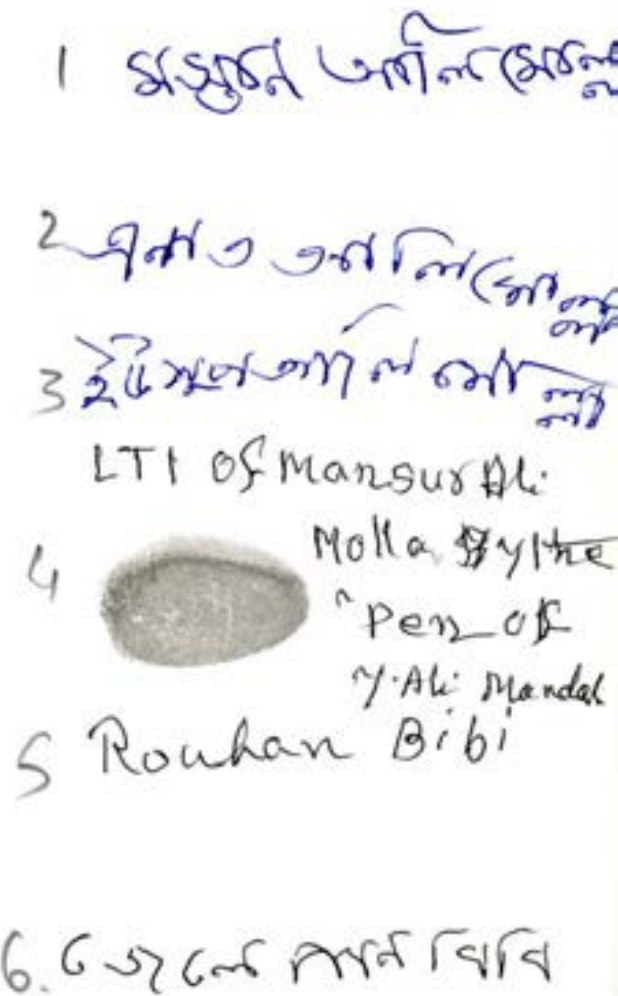 1 আলি মোল্লা
2 এনাত আলি মোল্লা
3 ইউসুপ আলি মোল্লা
LTI Of Mansur Ali
4 Molla By the
Pen of
Y. Ali Mandal
5 Roushan Bibi
6. বিবি